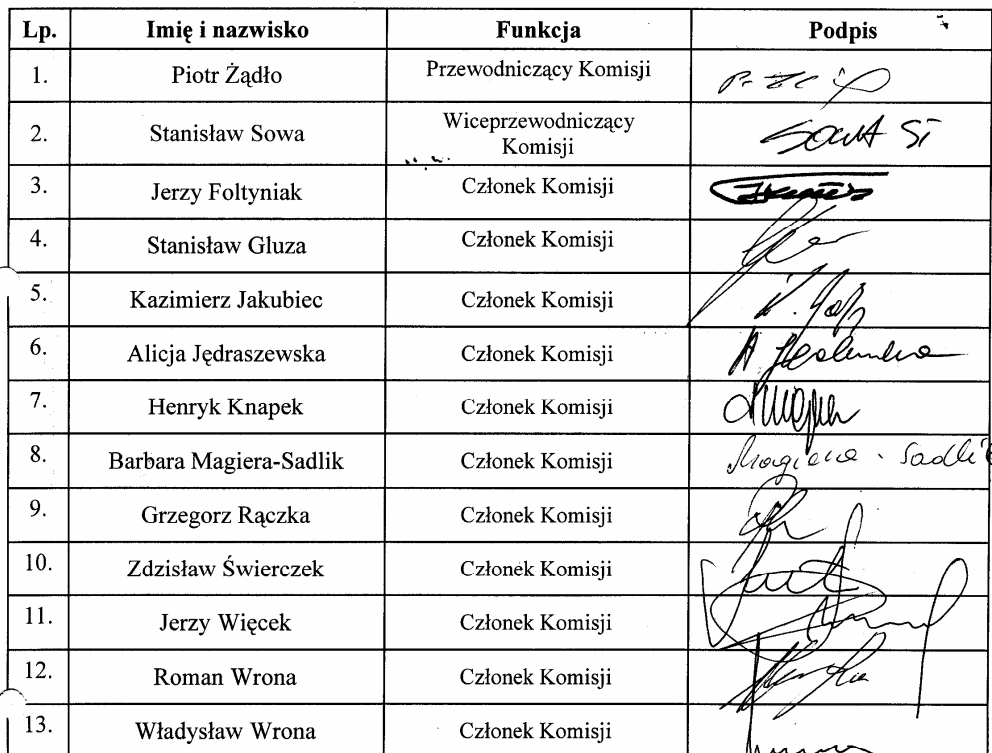 Lp. Imię i nazwisko Funkcja Podpis
1. Piotr Żądło Przewodniczący Komisji
2. Stanisław Sowa Wiceprzewodniczący
Komisji
3. Jerzy Foltyniak Członek Komisji
4. Stanisław Gluza Członek Komisji
5. Kazimierz Jakubiec Członek Komisji
6. Alicja Jędraszewska Członek Komisji
7. Henryk Knapek Członek Komisji
8. Barbara Magiera-Sadlik Członek Komisji Magiera - Sadlik
9. Grzegorz Rączka Członek Komisji
10. Zdzisław Świerczek Członek Komisji
11. Jerzy Więcek Członek Komisji
12. Roman Wrona Członek Komisji
13. Władysław Wrona Członek Komisji